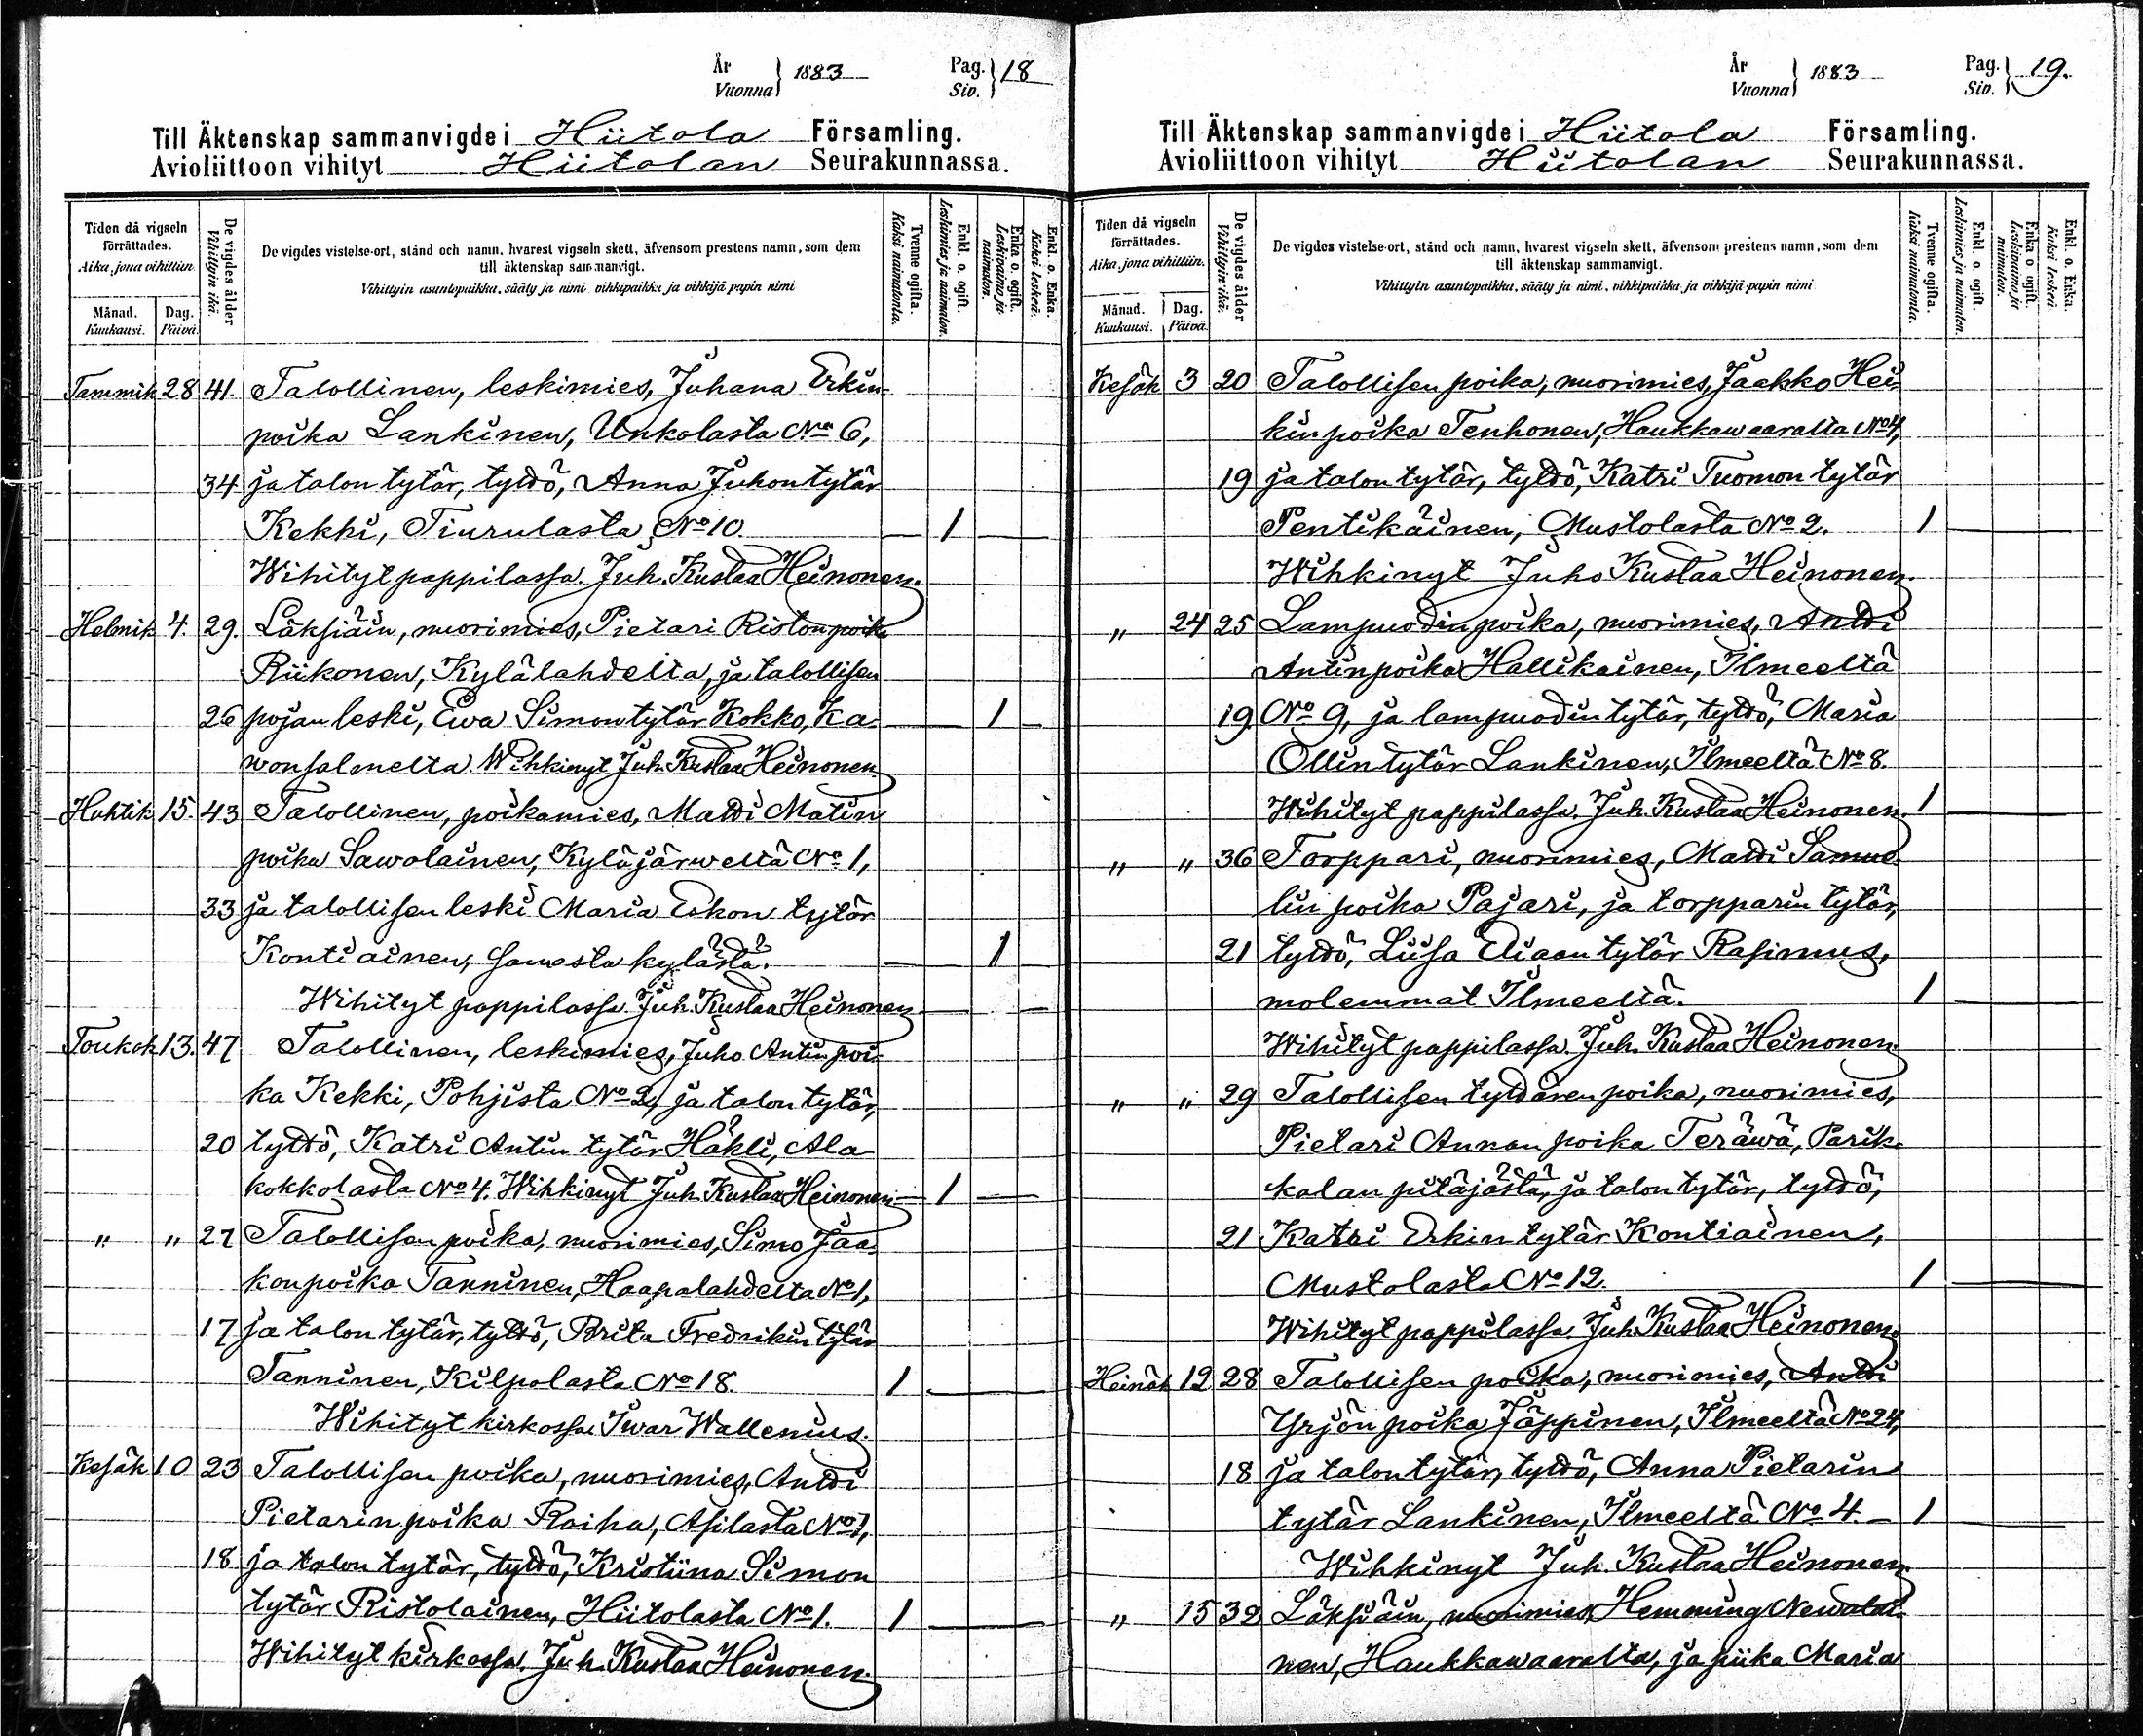 År
Vuonna } 1883
Pag.
Siv. } 18
Till Äktenskap sammanvigde i Hiitola Församling.
Avioliittoon vihityt Hiitolan Seurakunnassa.
Tiden då vigseln förrättades.
Aika, jona vihittiin.
Månad.
Kuukausi.
Dag.
Päivä.
De vigdes ålder
Vihittyin ikä.
De vigdes vistelse-ort, stånd och namn, hvarest vigseln skett, äfvensom prestens namn, som dem
till äktenskap sammanvigt.
Vihittyin asuntopaikka, sääty ja nimi, vihkipaikka ja vihkijä papin nimi
Tvenne ogifta.
Kaksi naimatonta.
Enkl. o. ogift.
Leskimies ja naimaton.
Enka o. ogift.
Leskivaimo ja naimaton.
Enkl. o. Enka.
Kaksi leskeä.
Tammik 28 41. Talollinen, leskimies, Juhana Erkin
poika Lankinen, Unkolasta No 6,
34 ja talon tytär, tyttö, Anna Juhontytär
Kekki, Tiurulasta No 10. 1
Wihityt pappilassa. Juh. Kustaa Heinonen.
Helmik 4. 29. Läksiäin, nuorimies, Pietari Ristonpoika
Riikonen, Kylälahdelta, ja talollisen
26 pojan leski, Ewa Simontytär Kokko, Ka-
wonsalmelta. Wihkinyt Juh. Kustaa Heinonen
Huhtik 15. 43 Talollinen, poikamies, Matti Matin
poika Sawolainen, Kyläjärweltä No 1,
33 ja talollisen leski Maria Eskon tytär
Kontiainen, samasta kylästä. 1
Wihityt pappilassa. Juh. Kustaa Heinonen
Toukok 13. 47 Talollinen, leskimies, Juho Antin poi-
ka Kekki, Pohjista No 2, ja talon tytär,
20 tyttö, Katri Antin tytär Häkli, Ala
kokkolasta No 4. Wihkinyt Juh. Kustaa Heinonen 1
" " 27 Talollisen poika, nuorimies, Simo Jaa-
kon poika Tanninen, Haapalahdelta No 1,
17 ja talon tytär, tyttö, Brita Fredrikin tytär
Tanninen, Kilpolasta No 18. 1
Wihityt kirkossa Iwar Wallenius.
Kesäk 10 23 Talollisen poika, nuorimies, Antti
Pietarin poika Raiha, Asilasta No 1,
18 ja talon tytär, tyttö, Kristiina Simon
tytär Ristolainen, Hiitolasta No 1. 1
Wihityt kirkossa. Juh. Kustaa Heinonen.
År
Vuonna } 1883
Pag.
Siv. } 19.
Till Äktenskap sammanvigde i Hiitola Församling.
Avioliittoon vihityt Hiitolan Seurakunnassa.
Tiden då vigseln förrättades.
Aika, jona vihittiin.
Månad.
Kuukausi.
Dag.
Päivä.
De vigdes ålder
Vihittyin ikä.
De vigdes vistelse-ort, stånd och namn, hvarest vigseln skett, äfvensom prestens namn, som dem
till äktenskap sammanvigt.
Vihittyin asuntopaikka, sääty ja nimi, vihkipaikka ja vihkijä-papin nimi
Tvenne ogifta.
Kaksi naimatonta.
Enkl. o. ogift.
Leskimies ja naimaton.
Enka o ogift.
Leskivaimo ja naimaton.
Enkl. o. Enka.
Kaksi leskeä.
Kesäk 3 20 Talollisen poika, nuorimies, Jaakko Hei-
kin poika Tenhonen, Haukkawaaralta No 4,
19 ja talon tytär, tyttö, Katri Tuomon tytär
Pentikäinen, Mustolasta No 2. 1
Wihkinyt Juho Kustaa Heinonen.
" 24 25 Lampuodin poika, nuorimies, Antti
Antinpoika Hallikainen, Ilmeeltä
19 No 9, ja lampuodin tytär, tyttö, Maria
Ollin tytär Lankinen, Ilmeeltä No 8.
Wihityt pappilassa. Juh. Kustaa Heinonen. 1
" " 36 Torppari, nuorimies, Matti Samue-
lin poika Pajari, ja torpparin tytär,
21 tyttö, Liisa Eliaan tytär Rasimus,
molemmat Ilmeeltä. 1
Wihityt pappilassa. Juh. Kustaa Heinonen
" " 29 Talollisen tyttären poika, nuorimies,
Pietari Annan poika Teräwä, Parik-
kalan pitäjästä, ja talon tytär, tyttö,
21 Katri Erkin tytär Kontiainen,
Mustolasta No 12. 1
Wihityt pappilassa Juh. Kustaa Heinonen.
Heinäk 12 28 Talollisen poika, nuorimies, Antti
Yrjön poika Jäppinen, Ilmeeltä No 24,
18 ja talon tytär, tyttö, Anna Pietarin
tytär Lankinen, Ilmeeltä No 4. 1
Wihkinyt Juh. Kustaa Heinonen.
" 15 32 Läksiäin, nuorimies, Hemming Newalai-
nen, Haukkawaaralta, ja piika Maria